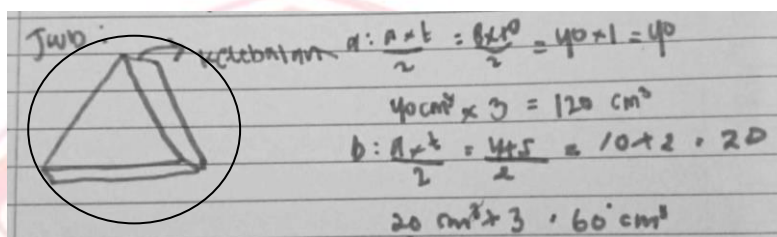 Jwb :
ketebalan a : a × t / 2 = 8×10 / 2 = 40 × 1 = 40
40 cm³ × 3 = 120 cm³
b : a × t / 2 = 4×5 / 2 = 10 × 2 = 20
20 cm³ × 3 = 60 cm³